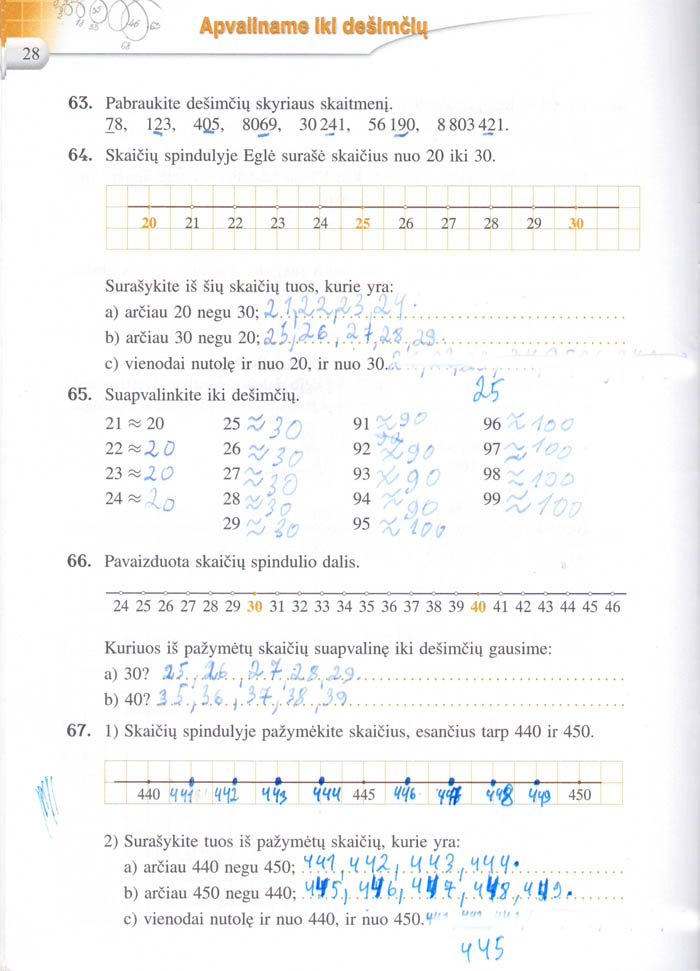 Apvaliname iki dešimčių
28
63. Pabraukite dešimčių skyriaus skaitmenį.
78, 123, 405, 8069, 30 241, 56 190, 8 803 421.
64. Skaičių spindulyje Eglė surašė skaičius nuo 20 iki 30.
20 21 22 23 24 25 26 27 28 29 30
Surašykite iš šių skaičių tuos, kurie yra:
a) arčiau 20 negu 30; 21, 22, 23, 24.
b) arčiau 30 negu 20; 25, 26, 27, 28, 29.
c) vienodai nutolę ir nuo 20, ir nuo 30.
25
65. Suapvalinkite iki dešimčių.
21 ≈ 20 25 ≈ 30 91 ≈ 90 96 ≈ 100
22 ≈ 20 26 ≈ 30 92 ≈ 90 97 ≈ 100
23 ≈ 20 27 ≈ 30 93 ≈ 90 98 ≈ 100
24 ≈ 20 28 ≈ 30 94 ≈ 90 99 ≈ 100
29 ≈ 30 95 ≈ 100
66. Pavaizduota skaičių spindulio dalis.
24 25 26 27 28 29 30 31 32 33 34 35 36 37 38 39 40 41 42 43 44 45 46
Kuriuos iš pažymėtų skaičių suapvalinę iki dešimčių gausime:
a) 30? 25, 26, 27, 28, 29
b) 40? 35, 36, 37, 38, 39
67. 1) Skaičių spindulyje pažymėkite skaičius, esančius tarp 440 ir 450.
440 441 442 443 444 445 446 447 448 449 450
2) Surašykite tuos iš pažymėtų skaičių, kurie yra:
a) arčiau 440 negu 450; 441, 442, 443, 444.
b) arčiau 450 negu 440; 445, 446, 447, 448, 449.
c) vienodai nutolę ir nuo 440, ir nuo 450.
445